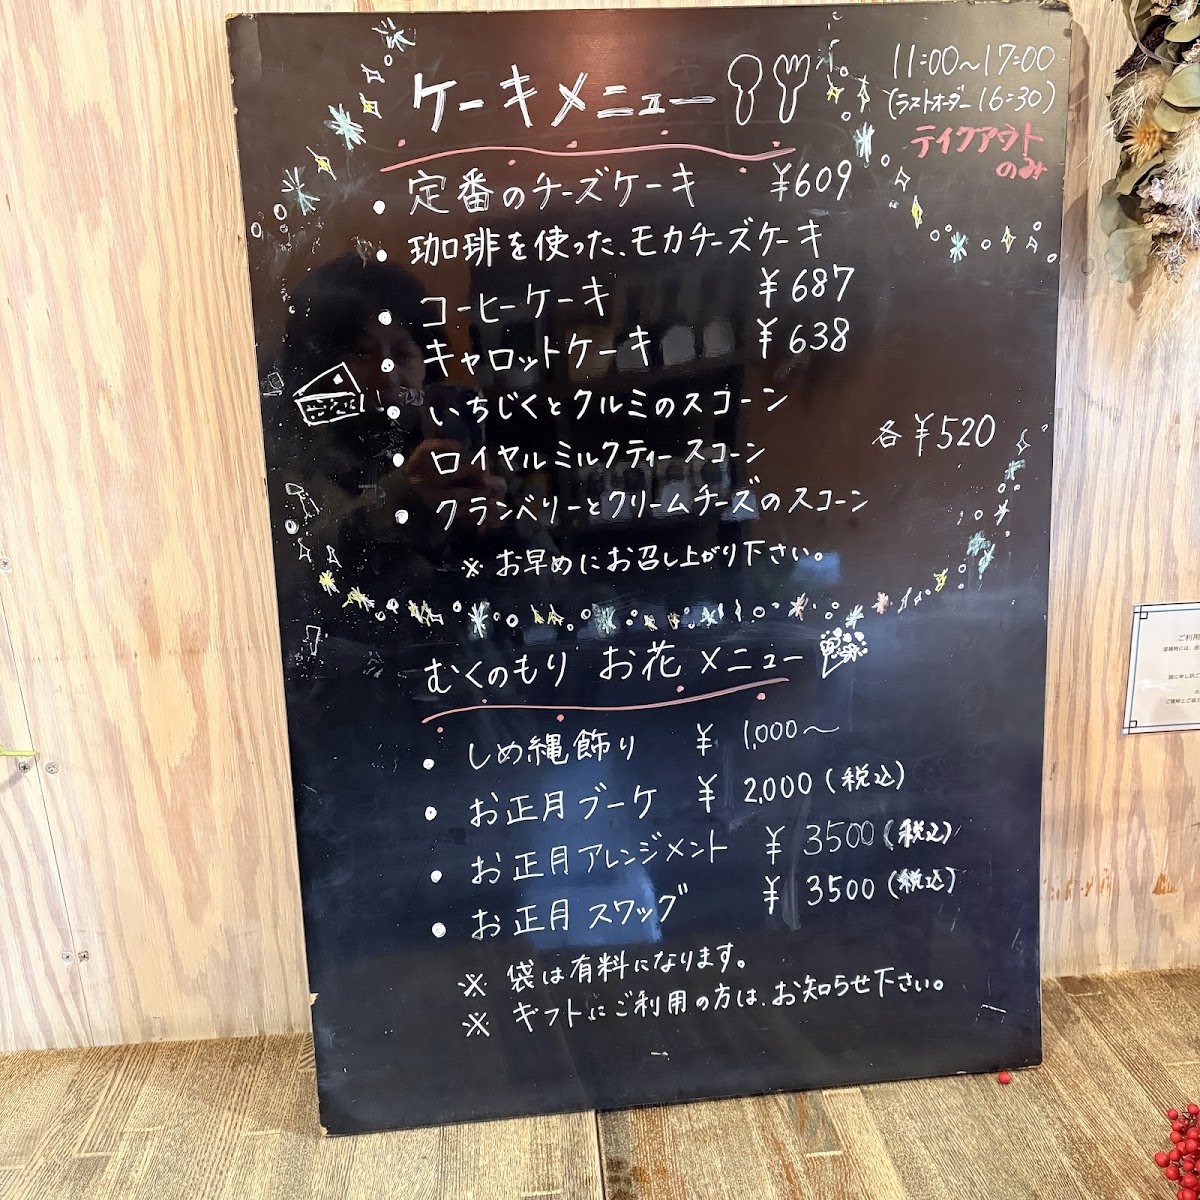 ケーキメニュー
11:00~17:00
(ラストオーダー 16:30)
テイクアウト
のみ
・定番のチーズケーキ ¥609
・珈琲を使った、モカチーズケーキ
・コーヒーケーキ ¥687
・キャロットケーキ ¥638
・いちじくとクルミのスコーン
・ロイヤルミルクティースコーン 各¥520
・クランベリーとクリームチーズのスコーン
※お早めにお召し上がり下さい。
むくのもり お花メニュー
・しめ縄飾り ¥ 1,000~
・お正月ブーケ ¥ 2,000(税込)
・お正月アレンジメント ¥ 3500(税込)
・お正月スワッグ ¥ 3500(税込)
※ 袋は有料になります。
※ ギフトにご利用の方は、お知らせ下さい。
ご利用